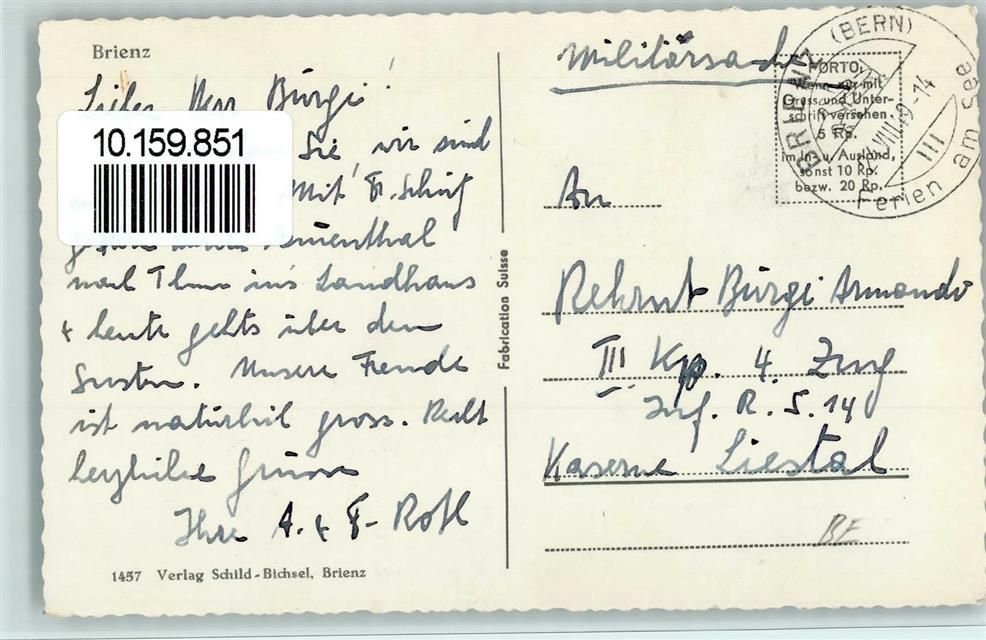 Brienz
Lieber Herr Bürgi!
Sie, wir sind
mit Fr.
nach Thun ins Landhaus
+ heute gehts über den
Susten. Unsere Freude
ist natürlich gross. Recht
herzliche Grüsse
Ihre A. + F. Roth
1457 Verlag Schild-Bichsel, Brienz
Fabrication Suisse
10.159.851
Militärsache
PORTO:
Wenn nur mit
Gruss und Unter-
schrift versehen
5 Rp.
im In- u. Ausland,
sonst 10 Rp.
bezw. 20 Rp.
BRIENZ (BERN)
VIII -14
III
Ferien am See
An
Rekrut Bürgi Armando
III Kp. 4. Zug
Inf. R. S. 14
Kaserne Liestal
BE